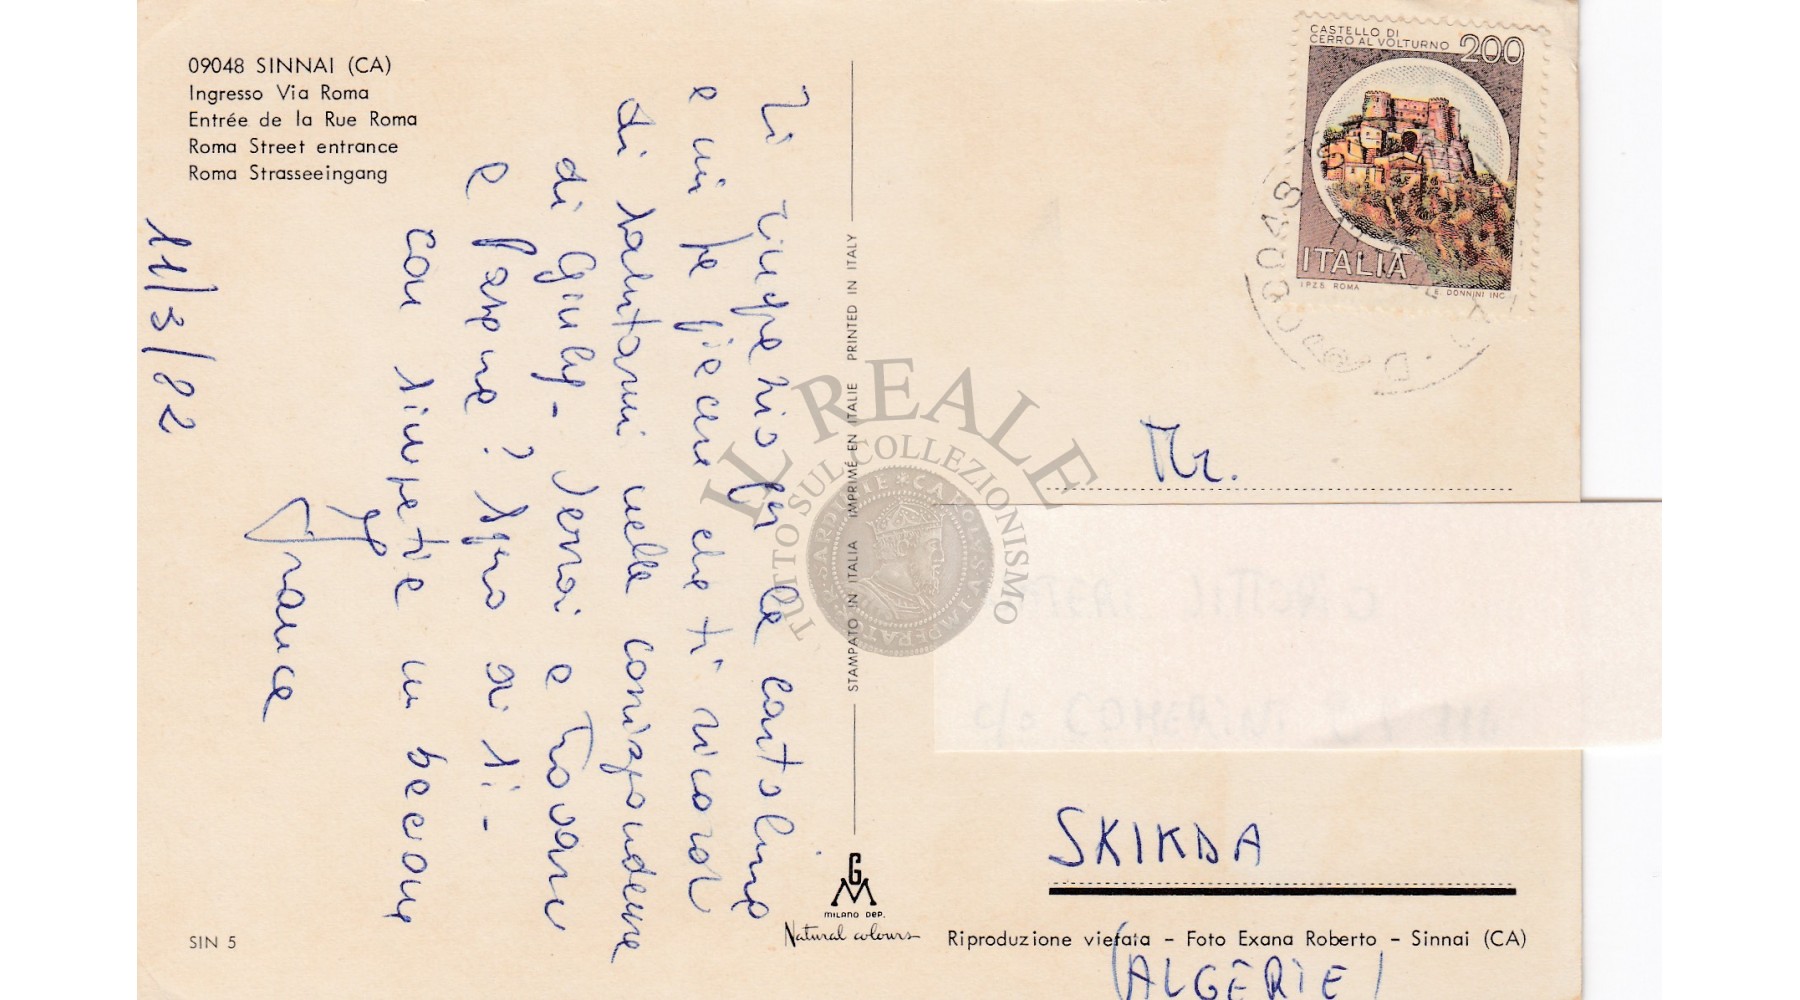 09048 SINNAI (CA)
Ingresso Via Roma
Entrée de la Rue Roma
Roma Street entrance
Roma Strasseeingang
11/3/82
Ti ringrazio per la cartolina
e mi fa piacere che ti ricordi
di salutarmi nella corrispondenza
di Giuly - Verrai a trovarci
a Pasqua? Spero di sì -
Con simpatia un bacione
Franca
STAMPATO IN ITALIA IMPRIMÉ EN ITALIE PRINTED IN ITALY
CASTELLO DI
CERRO AL VOLTURNO 200
ITALIA
I.P.Z.S. ROMA E. DONNINI INC.
09048
IL REALE
TUTTO SUL COLLEZIONISMO
Mr.
SKIKDA
(ALGÈRIE)
GM
MILANO DEP.
Natural colours
SIN 5
Riproduzione vietata - Foto Exana Roberto - Sinnai (CA)